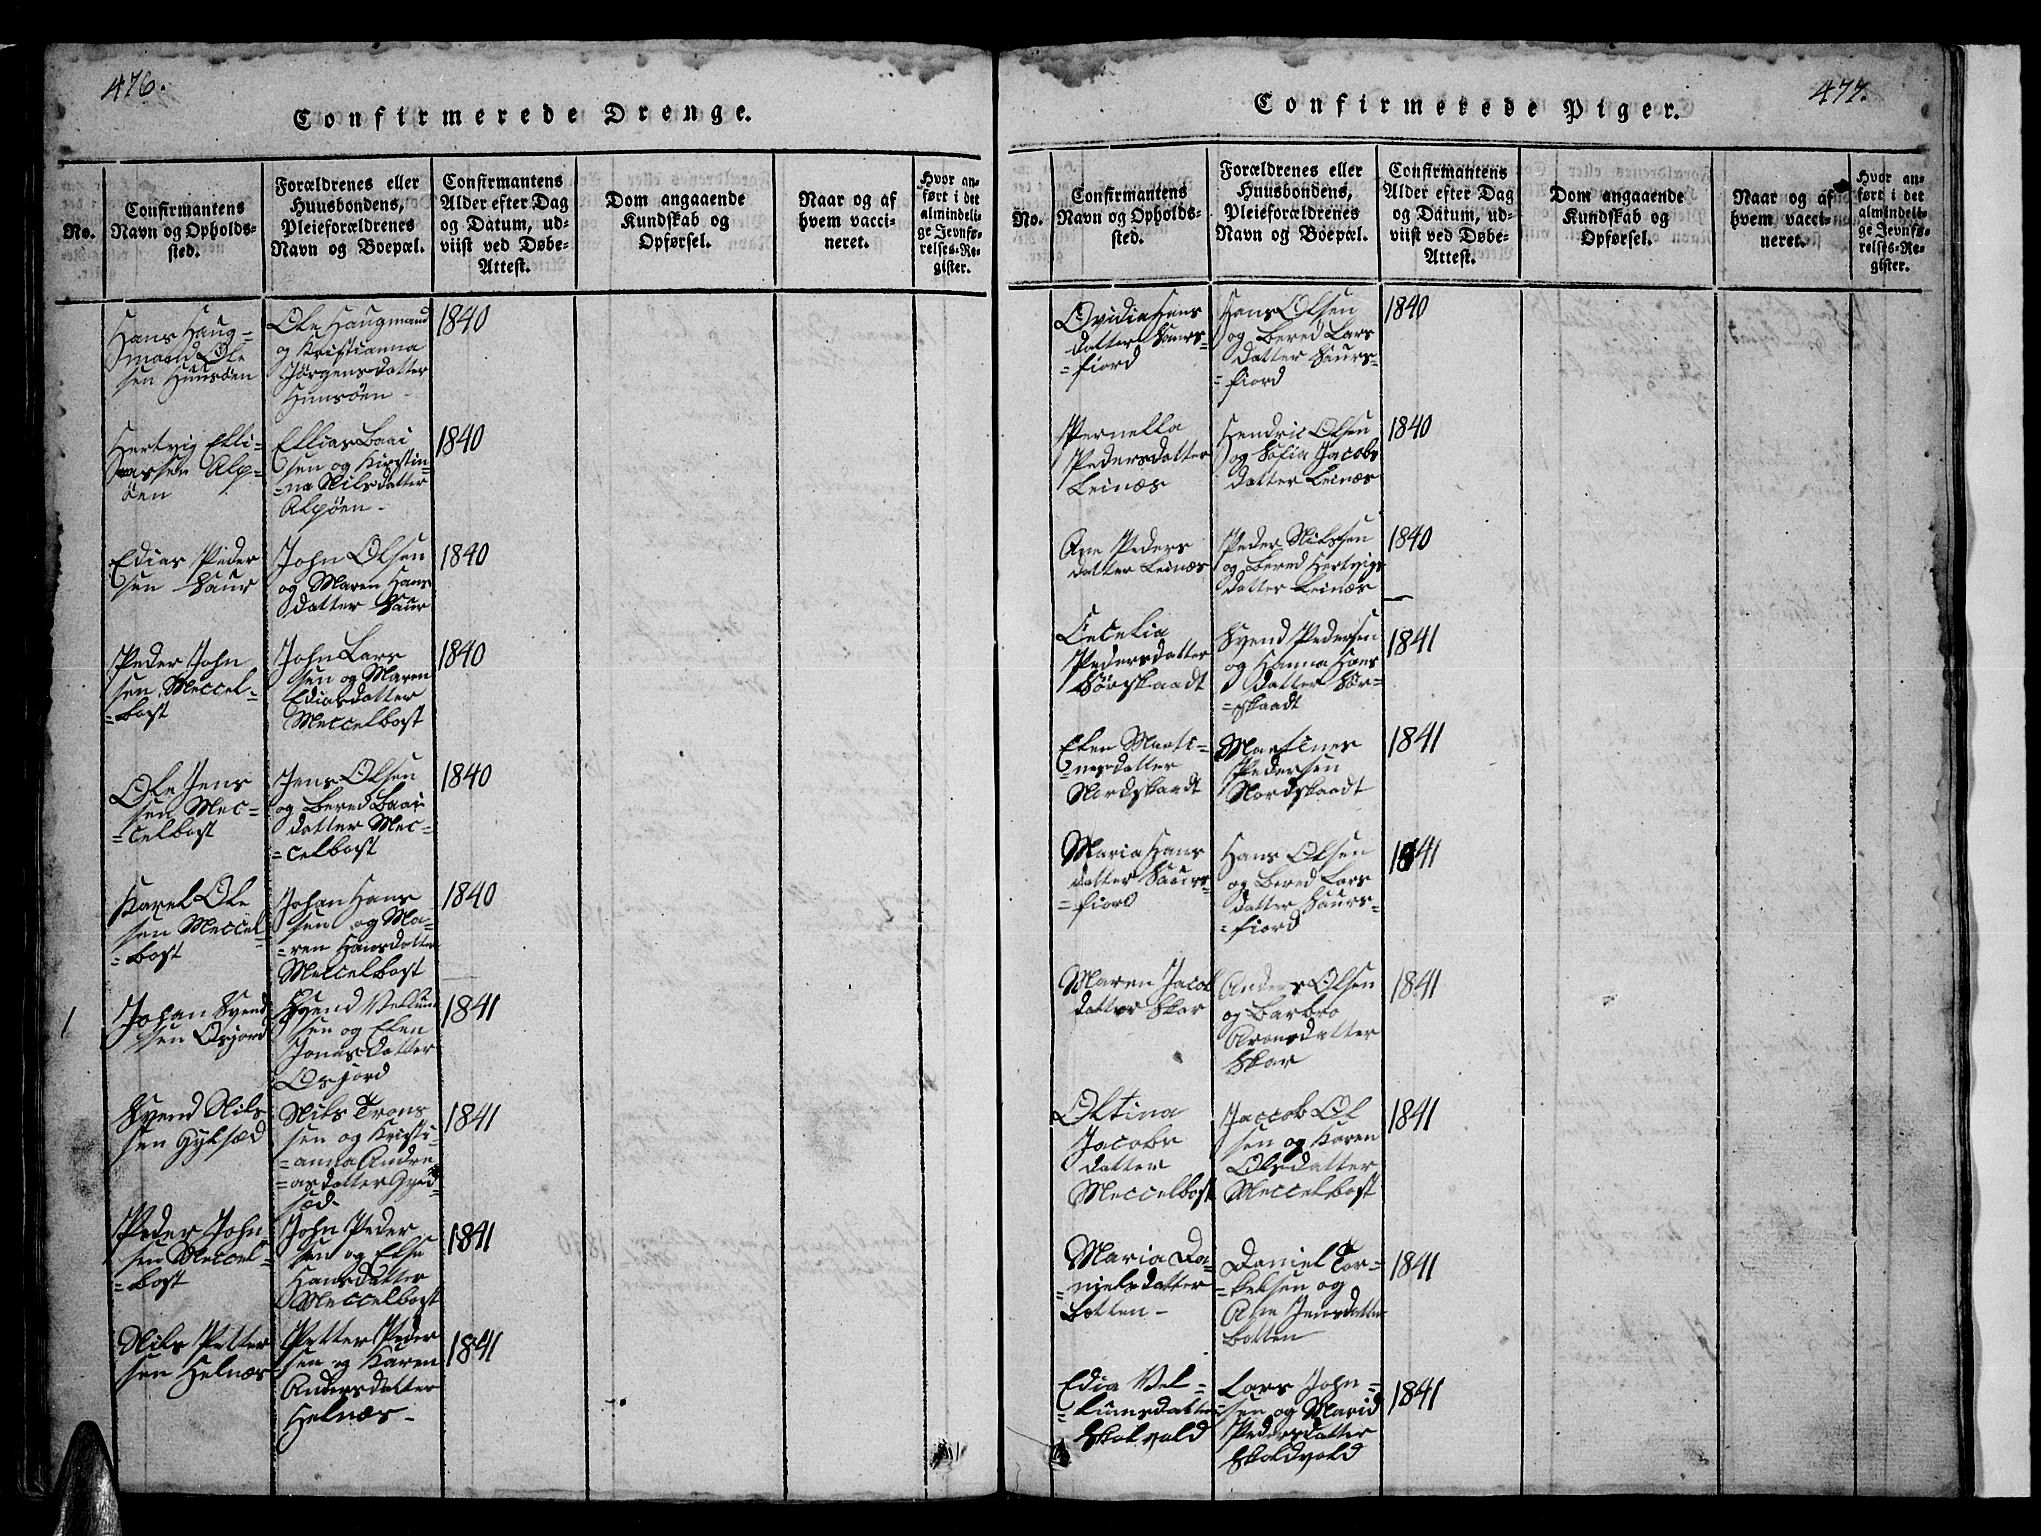 476.
Confirmerede Drenge.
No.
Confirmantens
Navn og Opholds-
sted.
Forældrenes eller
Huusbondens,
Pleieforældrenes
Navn og Boepæl.
Confirmantens
Alder efter Dag
og Datum, ud-
viist ved Døbe-
Attest.
Dom angaaende
Kundskab og
Opførsel.
Naar og af
hvem vacci-
neret.
Hvor an-
ført i det
almindeli-
ge Jevnfø-
relses-Re-
gister.
Hans Haug=
mand Ole
sen Hunsøen
Ole Haugmand
og Kristianna
Jørgensdatter
Hunsøen -
1840
Hertvig Elli=
assen Alp=
øen
Ellias Baai
sen og Kirstin=
=na Nilsdatter
Alpøen -
1840
Edias Peder
sen Saur
John Olsen
og Maren Hans
datter Saur
1840
Peder John
sen Meccel=
=bost
John Lars
sen og Maren
Ediasdatter
Meccelbost
1840
Ole Jens
sen Mec=
=celbost
Jens Olsen
og Bered Baai
datter Mec=
=celbost
1840
Karel Ole
sen Meccel=
=bost
Johan Hans
sen og Ma=
=ren Hansdatter
Meccelbost
1840
1
Johan Svend
sen Osjord
Svend Vellum
sen og Elen
Jonasdatter
Osjord
1841
Svend Nils
sen Gylsæd
Nils Trons
sen og Kristi=
=anna Andre
=asdatter
sæd
1841
Peder John
sen Meccel=
=bost
John Peder
sen og Else
Hansdatter
Meccelbost
1841
Nils Petter
sen Helnæs
Petter Peder
sen og Karen
Andersdatter
Helnæs -
1841
477.
Confirmerede Piger.
No.
Confirmantens
Navn og Opholds-
sted.
Forældrenes eller
Huusbondens,
Pleieforældrenes
Navn og Boepæl.
Confirmantens
Alder efter Dag
og Datum, ud-
viist ved Døbe-
Attest.
Dom angaaende
Kundskab og
Opførsel.
Naar og af
hvem vacci-
neret.
Hvor an-
ført i det
almindeli-
ge Jevnfø-
relses-Re-
gister.
Ovidia Hans
datter Saurs=
=fiord
Hans Olsen
og Bered Lars
datter Saurs=
=fiord
1840
Pernella
Pedersdatter
Leinæs
Hendric Olsen
og Sofia Jacobs
datter Leinæs
1840
Ane Peders
datter Leinæs
Peder Nilssen
og Bered Hertvigs
datter Leinæs
1840
Cecelia
Pedersdatter
Sørskaadt
Svend Pedersen
og Hanna Hans
datter Sør=
=skaadt
1841
Elen Marti=
=nesdatter
Nordskaadt
Martines
Pedersen
Nordskaadt
1841
Maria Hans
datter Saurs=
=fiord
Hans Olsen
og Bered Lars
datter Saurs=
=fiord
1841
Maren Jacob
datter Skar
Anders Olsen
og Barbro
Aronsdatter
Skar
1841
Oltina
Jacobs
datter
Meccelbost
Jaccob Ol
sen og Karen
Olsdatter
Meccelbost
1841
Maria Da=
=nielsdatter
Botten -
Daniel Tor=
=kelsen og
Ane Jensdatter
Botten
1841
Edia Vel=
=lumsdatter
Skolvold
Lars John=
=sen og Marid
Pedersdatter
Skoldvold
1841